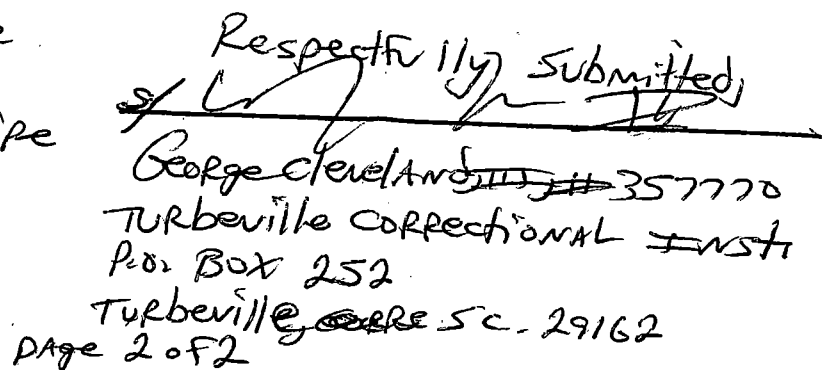 Respectfully Submitted,
s/
George Cleveland, III, 357770
Turbeville Correctional Inst.
P.O. Box 252
Turbeville, SC. 29162
Page 2 of 2